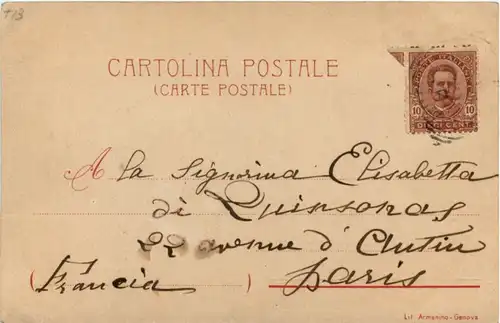 T13
CARTOLINA POSTALE
(CARTE POSTALE)
POSTE ITALIANE
10 10
DIECI CENT.
A la Signorina Elisabetta
di Quinsonas
22 avenue d'Antin
(Francia) Paris
Lit. Armanino-Genova